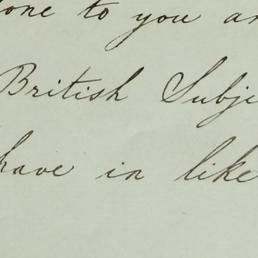 one to you an
British Subje
have in like